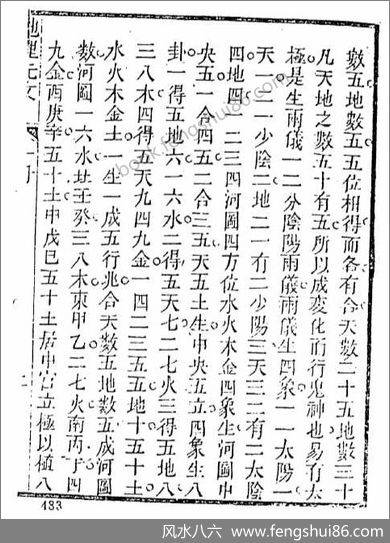 數五地數五五位相得而各有合天數二十五地數三十
凡天地之數五十有五所以成變化而行鬼神也易有太
極是生兩儀一二分陰陽兩儀兩儀生四象一一太陽一
天一二一少陰二地二一有二少陽三天三二有二太陰
四地四一二三四河圖四方位水火木金四象生河圖中
央五一合四五二合三五天五土生中央五立四象生八
卦一得五地六一六水二得五天七二七火三得五地八
三八木四得五天九四九金一四二三五五地十五十土
水火木金土 生一成五行兆合天數五地數五成河圖
數河圖一六水北壬癸三八木東甲乙二七火南丙丁四
九金酉庚辛五十土中戊巳五十土居中宮立極以植八
433
风水八六 www.fengshui86.com